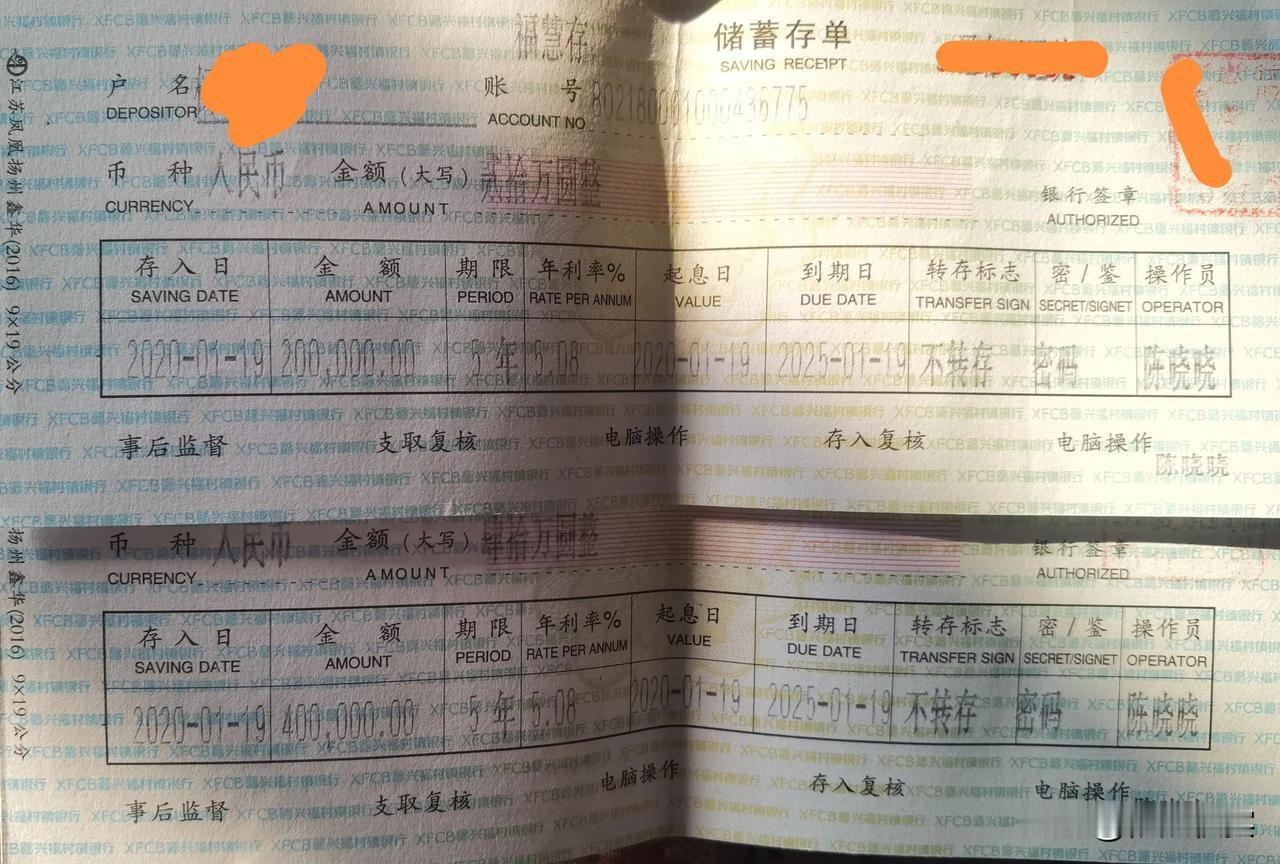 福慧存
储蓄存单
SAVING RECEIPT
户 名
DEPOSITOR
账 号
ACCOUNT NO
币 种 人民币 金额(大写) 贰拾万圆整
CURRENCY AMOUNT
银行签章
AUTHORIZED
存入日 金额 期限 年利率% 起息日 到期日 转存标志 密/鉴 操作员
SAVING DATE AMOUNT PERIOD RATE PER ANNUM VALUE DUE DATE TRANSFER SIGN SECRET/SIGNET OPERATOR
2020-01-19 200,000.00 5年 5.08 2020-01-19 2025-01-19 不转存 密码 陈晓晓
事后监督 支取复核 电脑操作 存入复核 电脑操作
陈晓晓
江苏凤凰扬州鑫华(2016) 9×19公分
币 种 人民币 金额(大写) 肆拾万圆整
CURRENCY AMOUNT
银行签章
AUTHORIZED
存入日 金额 期限 年利率% 起息日 到期日 转存标志 密/鉴 操作员
SAVING DATE AMOUNT PERIOD RATE PER ANNUM VALUE DUE DATE TRANSFER SIGN SECRET/SIGNET OPERATOR
2020-01-19 400,000.00 5年 5.08 2020-01-19 2025-01-19 不转存 密码 陈晓晓
事后监督 支取复核 电脑操作 存入复核 电脑操作
扬州鑫华(2016) 9×19公分